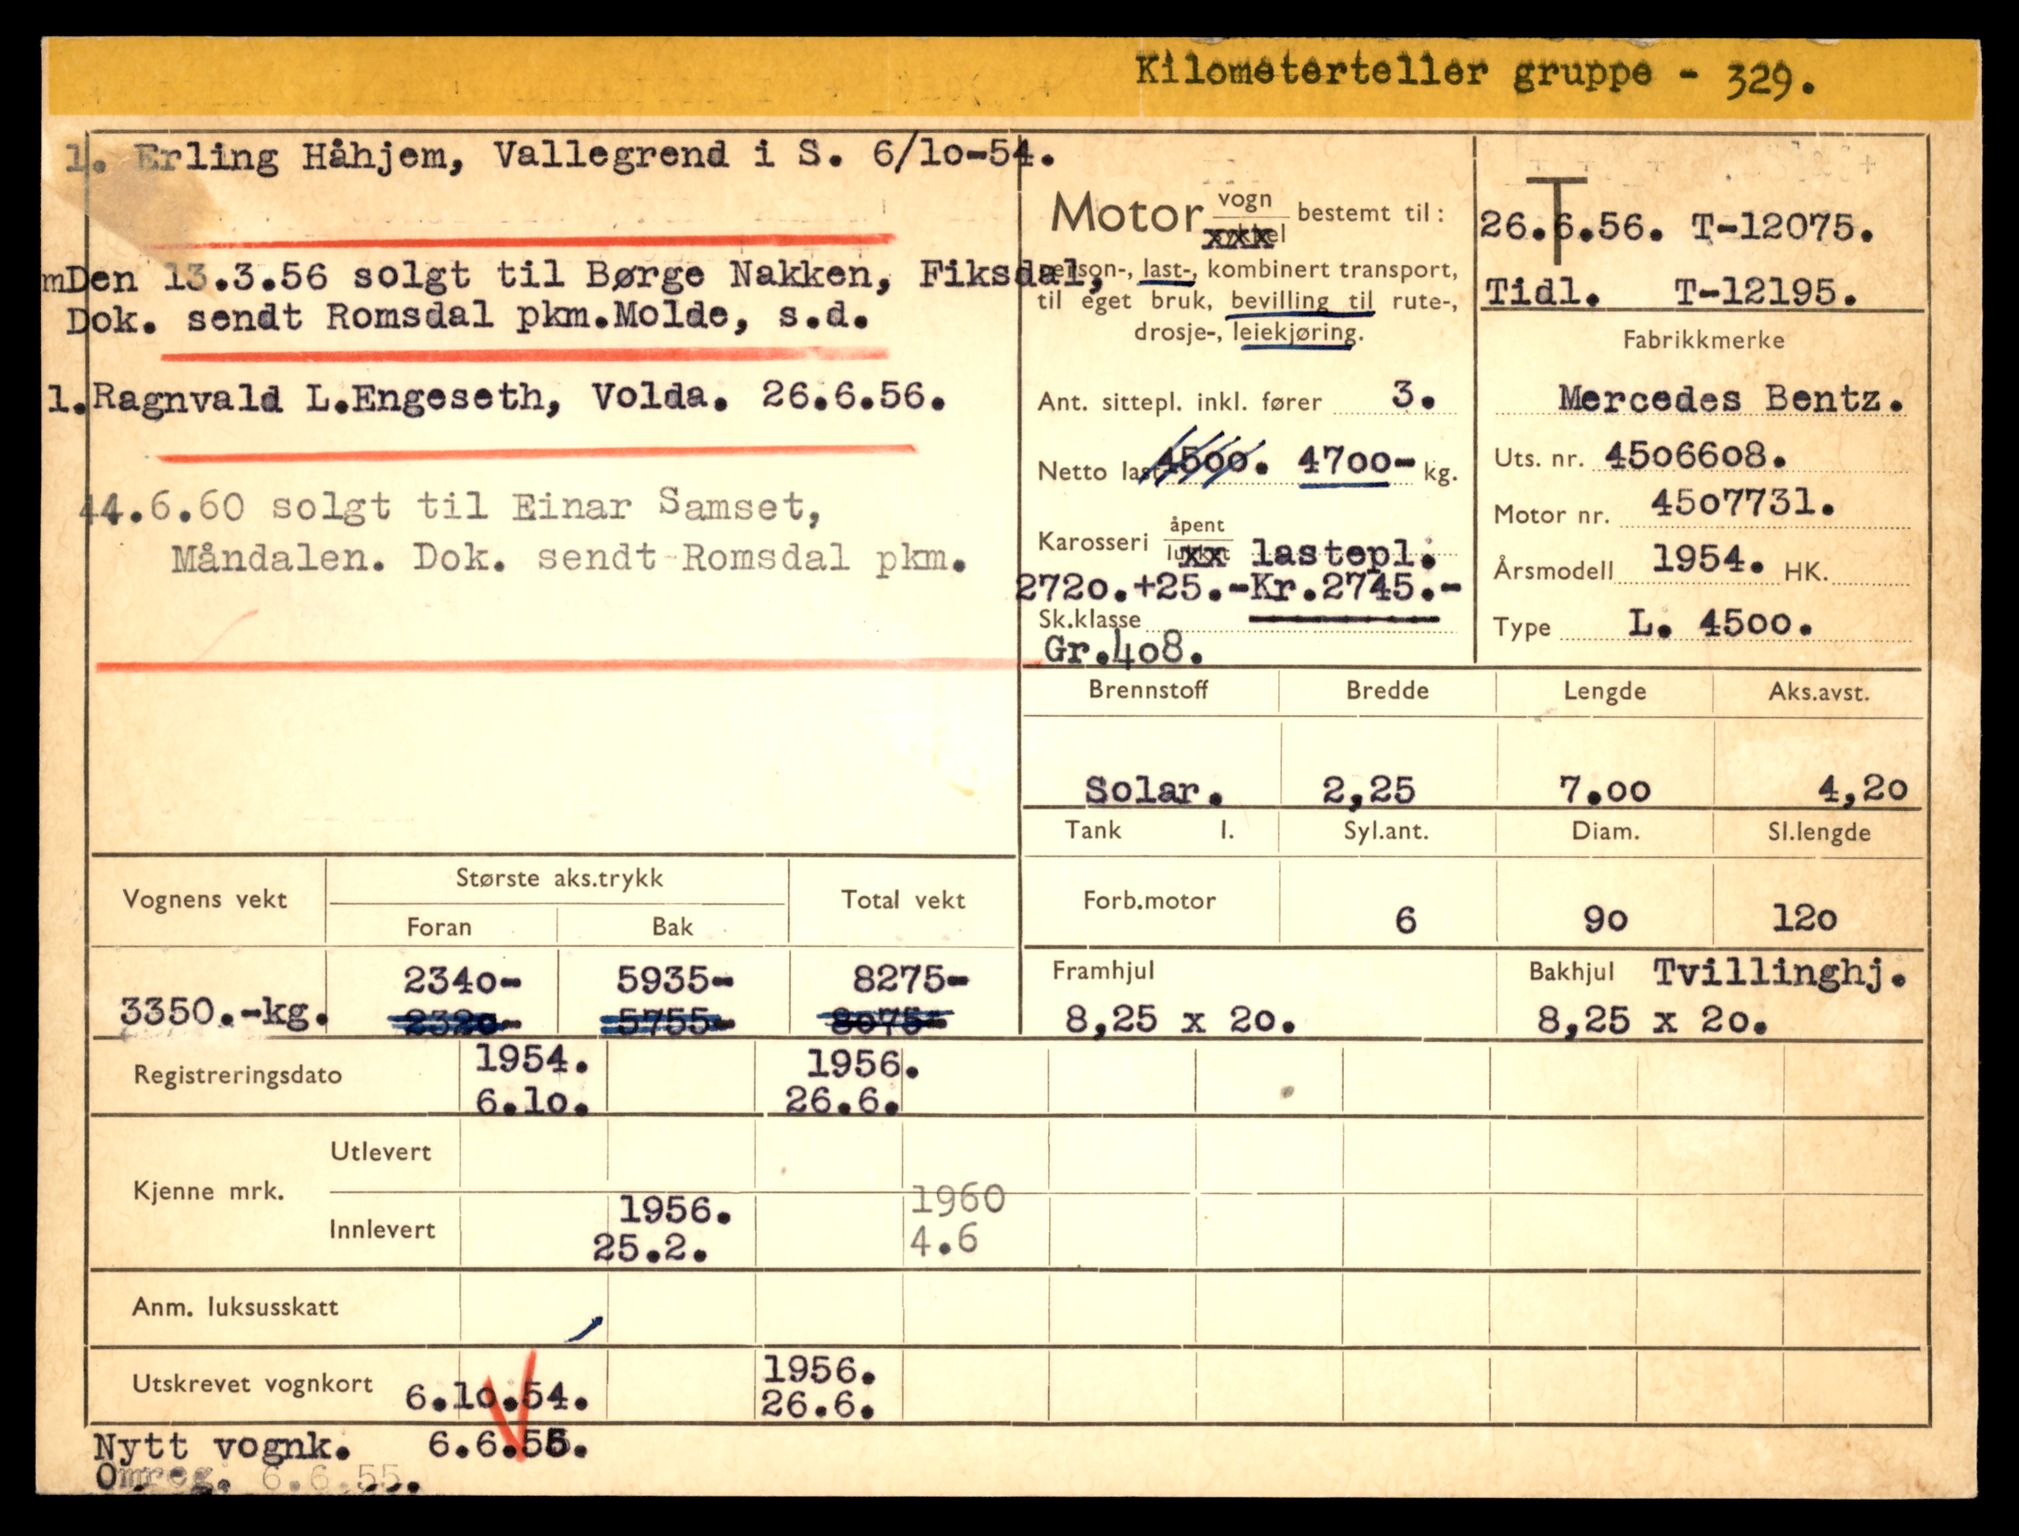 Kilometerteller gruppe - 329.
1. Erling Håhjem, Vallegrend i S. 6/10-54.
mDen 13.3.56 solgt til Børge Nakken, Fiksdal,
Dok. sendt Romsdal pkm.Molde, s.d.
1.Ragnvald L.Engeseth, Volda. 26.6.56.
14.6.60 solgt til Einar Samset,
Måndalen. Dok. sendt Romsdal pkm.
Motor vogn xxx bestemt til:
person-, last-, kombinert transport,
til eget bruk, bevilling til rute-,
drosje-, leiekjøring.
Ant. sittepl. inkl. fører 3.
Netto last 4500. 4700- kg.
Karosseri åpent lukket xx lastepl.
2720.+25.-Kr.2745.-
Sk.klasse
Gr.408.
T
26.6.56. T-12075.
Tidl. T-12195.
Fabrikkmerke
Mercedes Bentz.
Uts. nr. 4506608.
Motor nr. 4507731.
Årsmodell 1954. HK.
Type L. 4500.
Brennstoff Bredde Lengde Aks.avst.
Solar. 2,25 7.00 4,20
Tank l. Syl.ant. Diam. Sl.lengde
Forb.motor 6 90 120
Framhjul Bakhjul Tvillinghj.
8,25 x 20. 8,25 x 20.
Vognens vekt Største aks.trykk Total vekt
Foran Bak
2340- 5935- 8275-
3350.-kg. 2320- 5755- 8075-
Registreringsdato 1954. 1956.
6.10. 26.6.
Kjenne mrk. Utlevert
Innlevert 1956. 1960
25.2. 4.6
Anm. luksusskatt
Utskrevet vognkort 6.10.54. 1956.
26.6.
Nytt vognk. 6.6.55.
Omreg. 6.6.55.